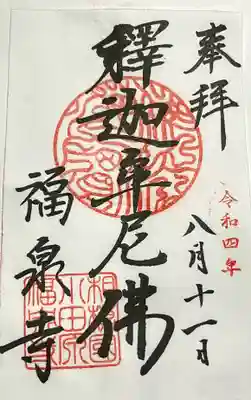 奉拝
令和四年
八月十一日
釋迦牟尼佛
福泉寺
相模
小田原
福泉寺